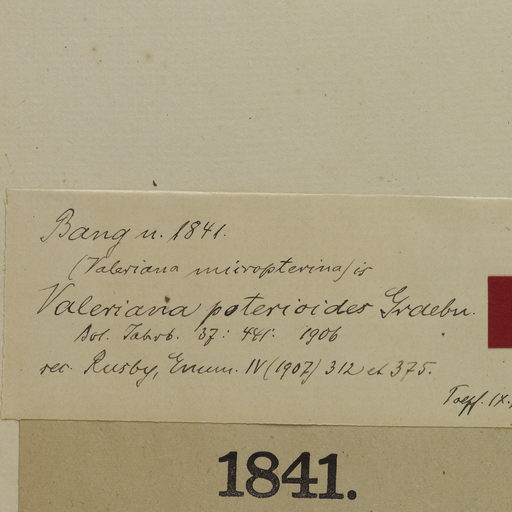 Bang n. 1841.
(Valeriana micropterina) is
Valeriana poterioides Graebn.
Bot. Jahrb. 37: 441. 1906
rec. Rusby, Enum. IV (1907) 312 et 375.
Toepf. IX.
1841.